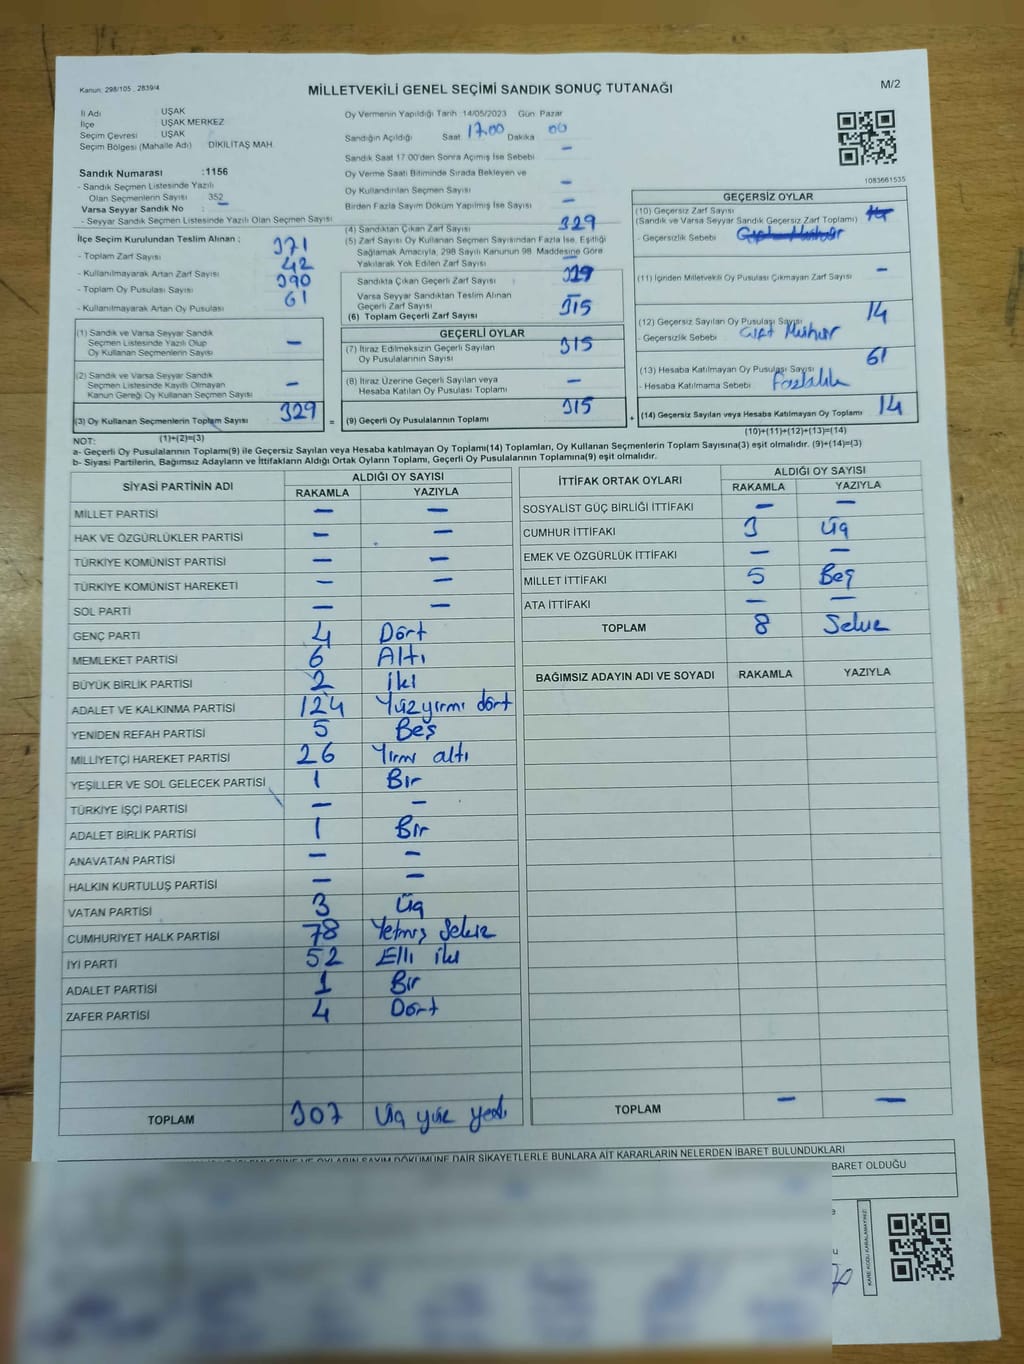 Kanun: 298/105 , 2839/4
MİLLETVEKİLİ GENEL SEÇİMİ SANDIK SONUÇ TUTANAĞI
M/2
İl Adı : UŞAK
İlçe : UŞAK MERKEZ
Seçim Çevresi : UŞAK
Seçim Bölgesi (Mahalle Adı) DİKİLİTAŞ MAH.
Sandık Numarası :1156
- Sandık Seçmen Listesinde Yazılı
Olan Seçmenlerin Sayısı : 352
Varsa Seyyar Sandık No : –
- Seyyar Sandık Seçmen Listesinde Yazılı Olan Seçmen Sayısı
İlçe Seçim Kurulundan Teslim Alınan ;
- Toplam Zarf Sayısı 371
- Kullanılmayarak Artan Zarf Sayısı 42
- Toplam Oy Pusulası Sayısı 390
- Kullanılmayarak Artan Oy Pusulası 61
(1) Sandık ve Varsa Seyyar Sandık
Seçmen Listesinde Yazılı Olup
Oy Kullanan Seçmenlerin Sayısı –
(2) Sandık ve Varsa Seyyar Sandık
Seçmen Listesinde Kayıtlı Olmayan
Kanun Gereği Oy Kullanan Seçmen Sayısı –
(3) Oy Kullanan Seçmenlerin Toplam Sayısı 329
(1)+(2)=(3)
Oy Vermenin Yapıldığı Tarih :14/05/2023 Gün: Pazar
Sandığın Açıldığı Saat 17.00 Dakika 00
Sandık Saat 17:00'den Sonra Açılmış İse Sebebi –
Oy Verme Saati Bitiminde Sırada Bekleyen ve
Oy Kullandırılan Seçmen Sayısı –
Birden Fazla Sayım Döküm Yapılmış İse Sayısı –
(4) Sandıktan Çıkan Zarf Sayısı 329
(5) Zarf Sayısı Oy Kullanan Seçmen Sayısından Fazla İse, Eşitliği
Sağlamak Amacıyla; 298 Sayılı Kanunun 98. Maddesine Göre
Yakılarak Yok Edilen Zarf Sayısı –
Sandıkta Çıkan Geçerli Zarf Sayısı : 329
Varsa Seyyar Sandıktan Teslim Alınan
Geçerli Zarf Sayısı –
(6) Toplam Geçerli Zarf Sayısı 315
GEÇERLİ OYLAR
(7) İtiraz Edilmeksizin Geçerli Sayılan
Oy Pusulalarının Sayısı 315
(8) İtiraz Üzerine Geçerli Sayılan veya
Hesaba Katılan Oy Pusulası Toplamı –
= (9) Geçerli Oy Pusulalarının Toplamı 315 +
1083661535
GEÇERSİZ OYLAR
(10) Geçersiz Zarf Sayısı
(Sandık ve Varsa Seyyar Sandık Geçersiz Zarf Toplamı)
- Geçersizlik Sebebi
(11) İçinden Milletvekili Oy Pusulası Çıkmayan Zarf Sayısı –
(12) Geçersiz Sayılan Oy Pusulası Sayısı 14
- Geçersizlik Sebebi Çift Mühür
(13) Hesaba Katılmayan Oy Pusulası Sayısı 61
- Hesaba Katılmama Sebebi Fazlalık
(14) Geçersiz Sayılan veya Hesaba Katılmayan Oy Toplamı 14
(10)+(11)+(12)+(13)=(14)
NOT:
a- Geçerli Oy Pusulalarının Toplamı(9) ile Geçersiz Sayılan veya Hesaba katılmayan Oy Toplamı(14) Toplamları, Oy Kullanan Seçmenlerin Toplam Sayısına(3) eşit olmalıdır. (9)+(14)=(3)
b- Siyasi Partilerin, Bağımsız Adayların ve İttifakların Aldığı Ortak Oyların Toplamı, Geçerli Oy Pusulalarının Toplamına(9) eşit olmalıdır.
SİYASİ PARTİNİN ADI ALDIĞI OY SAYISI
RAKAMLA YAZIYLA
MİLLET PARTİSİ – –
HAK VE ÖZGÜRLÜKLER PARTİSİ – –
TÜRKİYE KOMÜNİST PARTİSİ – –
TÜRKİYE KOMÜNİST HAREKETİ – –
SOL PARTİ – –
GENÇ PARTİ 4 Dört
MEMLEKET PARTİSİ 6 Altı
BÜYÜK BİRLİK PARTİSİ 2 iki
ADALET VE KALKINMA PARTİSİ 124 Yüzyirmi dört
YENİDEN REFAH PARTİSİ 5 Beş
MİLLİYETÇİ HAREKET PARTİSİ 26 Yirmi altı
YEŞİLLER VE SOL GELECEK PARTİSİ 1 Bir
TÜRKİYE İŞÇİ PARTİSİ – –
ADALET BİRLİK PARTİSİ 1 Bir
ANAVATAN PARTİSİ – –
HALKIN KURTULUŞ PARTİSİ – –
VATAN PARTİSİ 3 Üç
CUMHURİYET HALK PARTİSİ 78 Yetmiş Sekiz
İYİ PARTİ 52 Elli iki
ADALET PARTİSİ 1 Bir
ZAFER PARTİSİ 4 Dört
TOPLAM 307 Üç yüz yedi
İTTİFAK ORTAK OYLARI ALDIĞI OY SAYISI
RAKAMLA YAZIYLA
SOSYALİST GÜÇ BİRLİĞİ İTTİFAKI – –
CUMHUR İTTİFAKI 3 Üç
EMEK VE ÖZGÜRLÜK İTTİFAKI – –
MİLLET İTTİFAKI 5 Beş
ATA İTTİFAKI – –
TOPLAM 8 Sekiz
BAĞIMSIZ ADAYIN ADI VE SOYADI RAKAMLA YAZIYLA
TOPLAM – –
İŞLEMLERİNE VE OYLARIN SAYIM DÖKÜMÜNE DAİR ŞİKAYETLERLE BUNLARA AİT KARARLARIN NELERDEN İBARET BULUNDUKLARI
İBARET OLDUĞU
KARE KODU KARALAMAYINIZ!